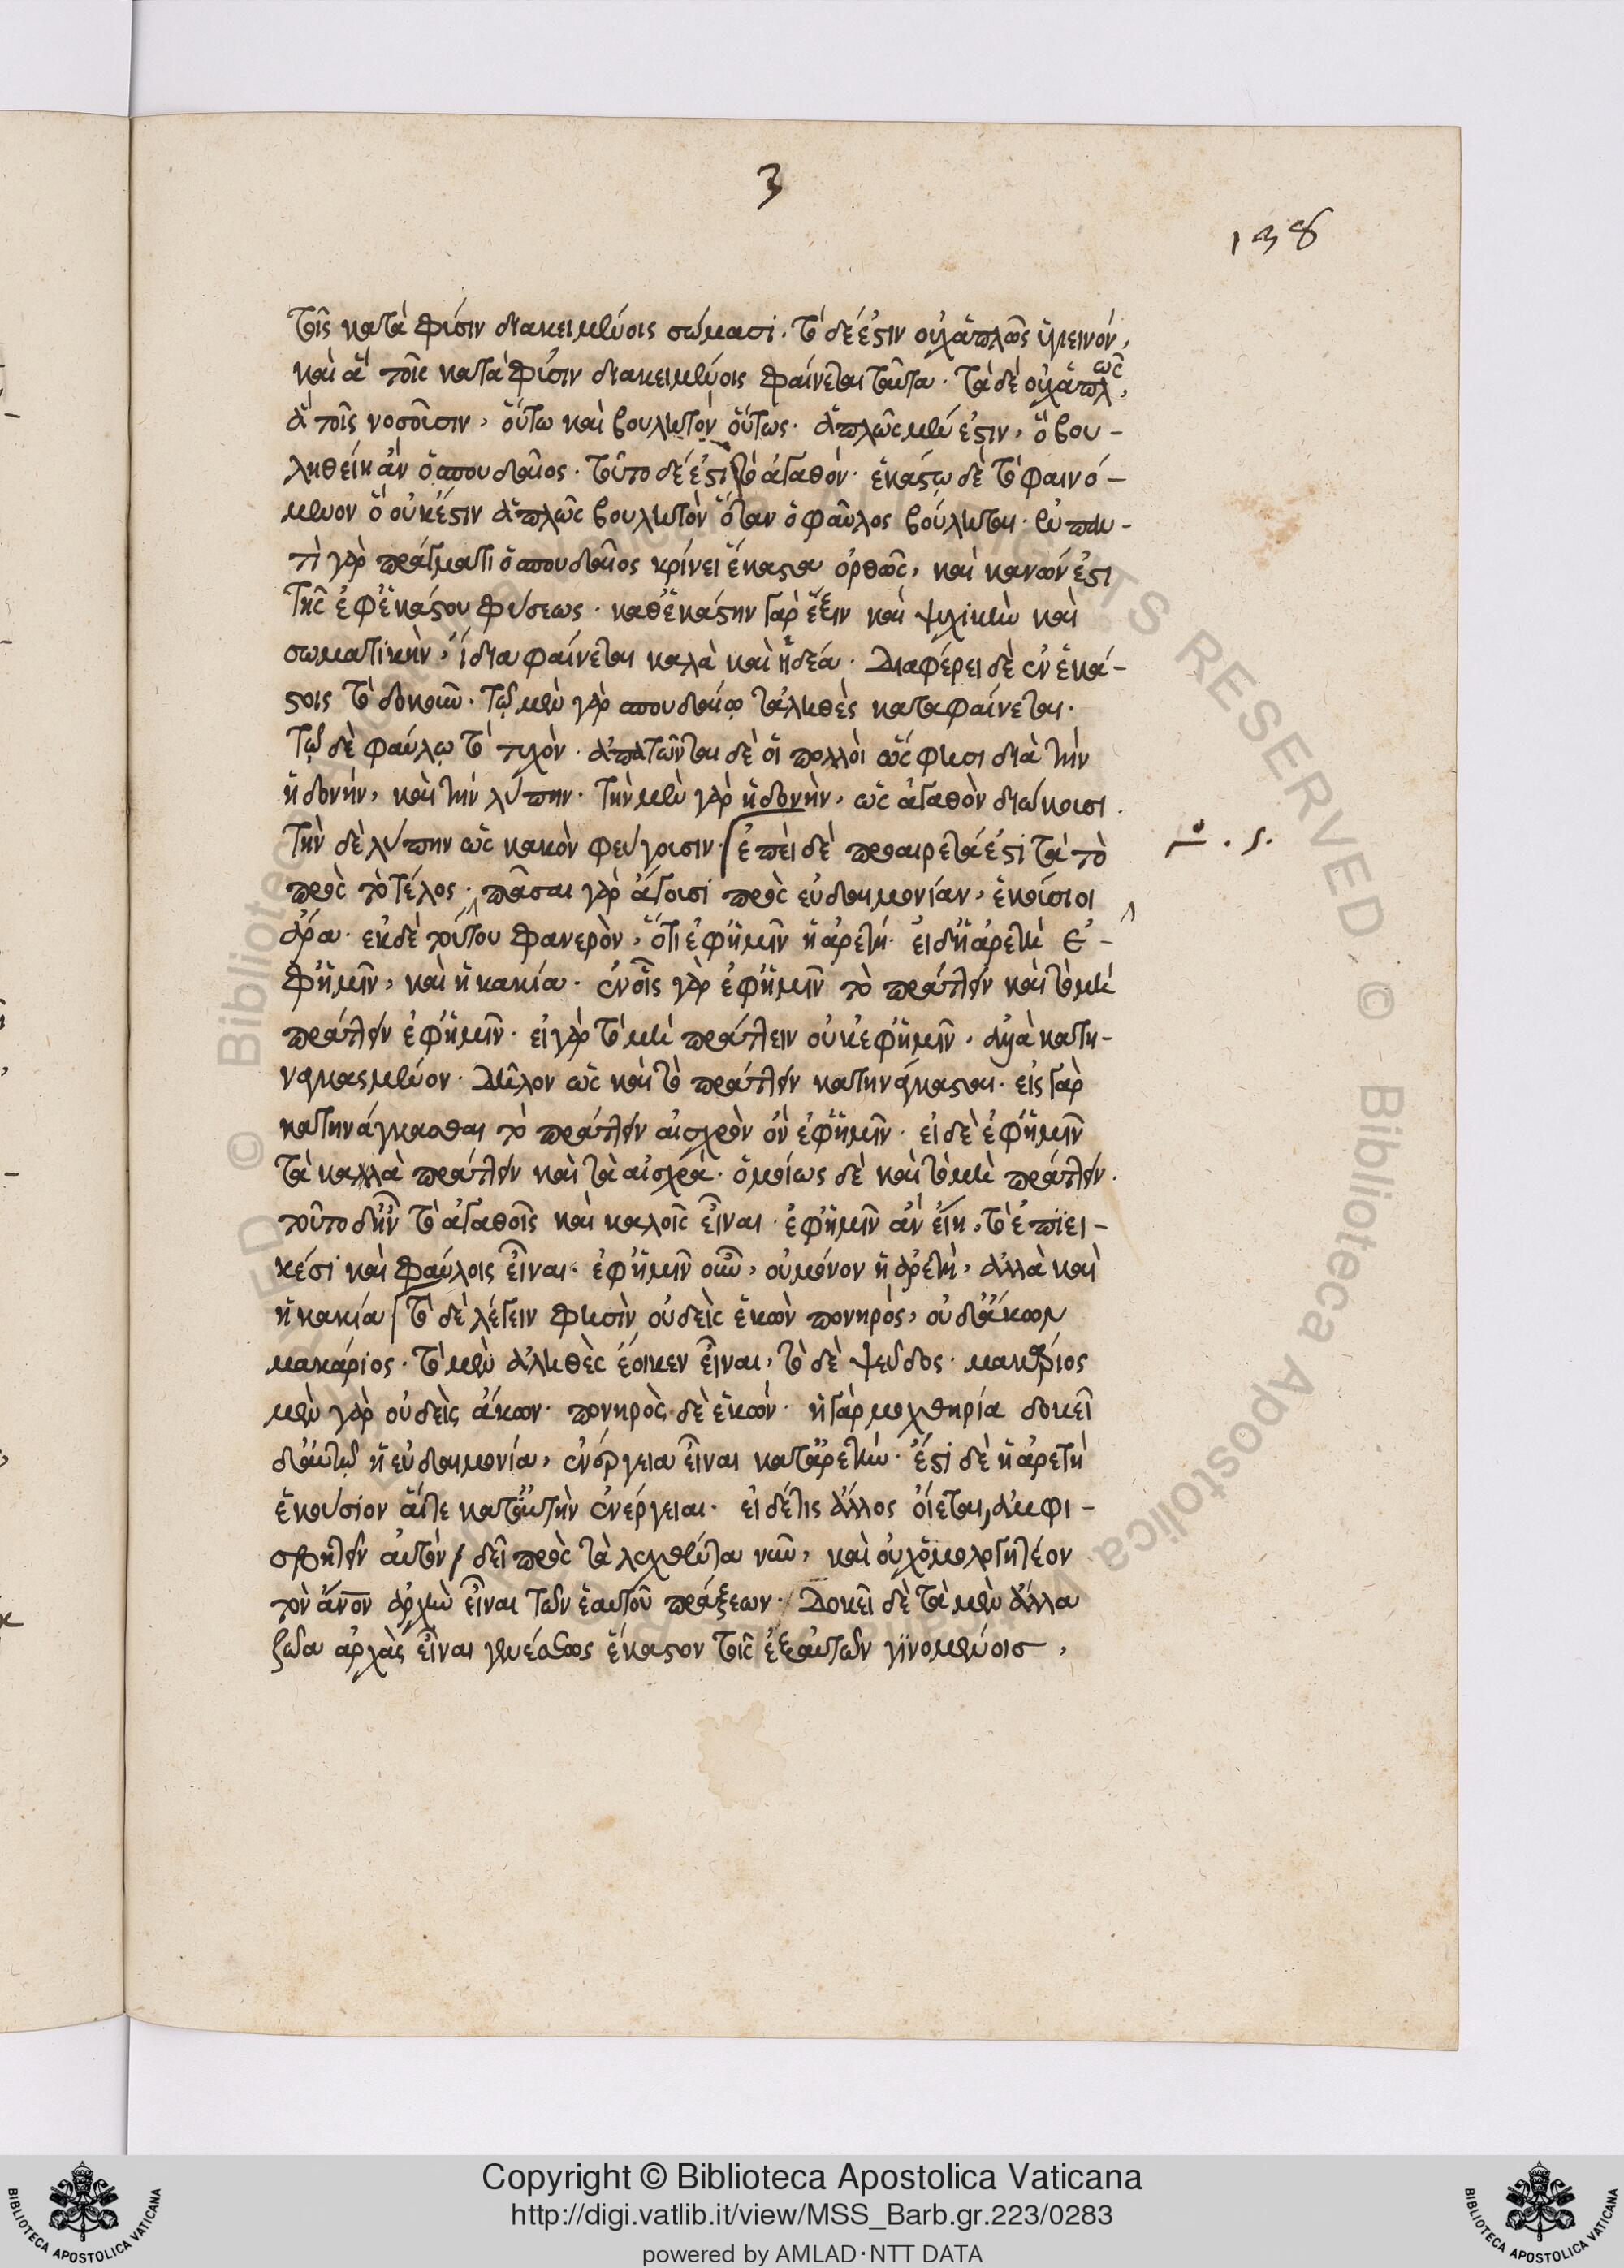 3
138
τοῖς κατὰ φύσιν διακειμένοις σώμασι. τὸ δέ ἐστιν οὐχ ἁπλῶς ὑγιεινόν,
καὶ ἃ τοῖς κατὰ φύσιν διακειμένοις φαίνεται ταῦτα. τὰ δὲ οὐχ ἁπλῶς,
ἃ τοῖς νοσοῦσιν, οὕτω καὶ βουλητὸν οὕτως. ἁπλῶς μέν ἐστιν, ὃ βου-
ληθείη ἂν ὁ σπουδαῖος. τοῦτο δέ ἐστι τὸ ἀγαθόν. ἑκάστῳ δὲ τὸ φαινό-
μενον ὃ οὐκ ἔστιν ἁπλῶς βουλητὸν ὅταν ὁ φαῦλος βούληται. ἐν παν-
τὶ γὰρ πράγματι ὁ σπουδαῖος κρίνει ἕκαστα ὀρθῶς, καὶ κανών ἐστι
τῆς ἐφ' ἑκάστου φύσεως. καθ' ἑκάστην γὰρ ἕξιν καὶ ψυχικὴν καὶ
σωματικὴν, ἴδια φαίνεται καλὰ καὶ ἡδέα. Διαφέρει δὲ ἐν ἑκά-
στοις τὸ δοκοῦν. τῷ μὲν γὰρ σπουδαίῳ τἀληθὲς καταφαίνεται.
τῷ δὲ φαύλῳ τὸ τυχὸν. ἀπατῶνται δὲ οἱ πολλοὶ ὥς φησι διὰ τὴν
ἡδονήν, καὶ τὴν λύπην. τὴν μὲν γὰρ ἡδονὴν, ὡς ἀγαθὸν διώκουσι.
τὴν δὲ λύπην ὡς κακὸν φεύγουσιν. ἐπεὶ δὲ προαιρετά ἐστι τὰ τὸ
πρὸς τὸ τέλος. πᾶσαι γὰρ ἄγουσι πρὸς εὐδαιμονίαν, ἑκούσιοι
ἄρα. ἐκ δὲ τούτου φανερὸν, ὅτι ἐφ' ἡμῖν ἡ ἀρετή. εἰ δ' ἡ ἀρετὴ ἐ-
φ' ἡμῖν, καὶ ἡ κακία. ἐν οἷς γὰρ ἐφ' ἡμῖν τὸ πράττειν καὶ τὸ μὴ
πράττειν ἐφ' ἡμῖν. εἰ γὰρ τὸ μὴ πράττειν οὐκ ἐφ' ἡμῖν, ἀλλὰ κατη-
ναγκασμένον. Δῆλον ὡς καὶ τὸ πράττειν κατηνάγκασται. εἰς γὰρ
κατηνάγκασθαι τὸ πράττειν αἰσχρὸν ὂν ἐφ' ἡμῖν. εἰ δὲ ἐφ' ἡμῖν
τὰ καλλὰ πράττειν καὶ τὰ αἰσχρὰ. ὁμοίως δὲ καὶ τὸ μὴ πράττειν.
τοῦτο δ' ἦν τὸ ἀγαθοῖς καὶ καλοῖς εἶναι. ἐφ' ἡμῖν ἂν εἴη, τὸ ἐπιει-
κέσι καὶ φαύλοις εἶναι. ἐφ' ἡμῖν οὖν, οὐ μόνον ἡ ἀρετὴ, ἀλλὰ καὶ
ἡ κακία τὸ δὲ λέγειν φησὶν οὐδεὶς ἑκὼν πονηρὸς, οὐδ' ἄκων
μακάριος. τὸ μὲν ἀληθὲς ἔοικεν εἶναι, τὸ δὲ ψεῦδος. μακάριος
μὲν γὰρ οὐδεὶς ἄκων. πονηρὸς δὲ ἑκών. ἡ γὰρ μοχθηρία δοκεῖ
δ' αὐτῷ ἡ εὐδαιμονία, ἐνέργεια εἶναι κατ' ἀρετήν. ἔστι δὲ ἡ ἀρετὴ
ἑκούσιον αἵτε κατ' αὐτὴν ἐνέργειαι. εἰ δέ τις ἄλλος οἴεται, ἀμφι-
σβητεῖν αὐτὸν δεῖ πρὸς τὰ λεχθέντα νῦν, καὶ οὐχ ὁμολογητέον
τὸν ἄνον ἀρχὴν εἶναι τῶν ἑαυτοῦ πράξεων. Δοκεῖ δὲ τὰ μὲν ἄλλα
ζῶα ἀρχὰς εἶναι γενέσεως ἕκαστον τοῖς ἐξ αὐτῶν γινομένοισ,